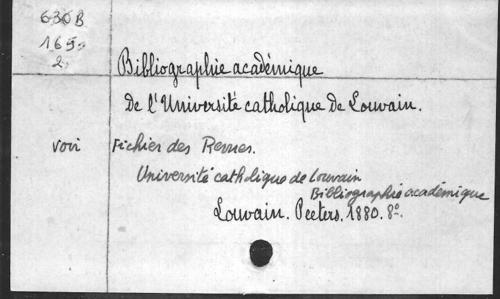 630B
165.
2.
Bibliographie académique
de l'Université catholique de Louvain.
voir Fichier des Revues.
Université catholique de Louvain
Bibliographie académique
Louvain. Peeters. 1880. 8º.